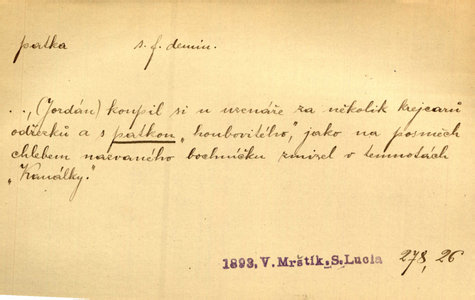 patka s. f. demin.
..., (Jordán) koupil si u uzenáře za několik krejcarů
odřezků a s patkou „houbovitého," jako na posměch
chlebem nazvaného bochníčku zmizel v temnotách
„Kanálky."
1893, V. Mrštík, S. Lucia 278, 26